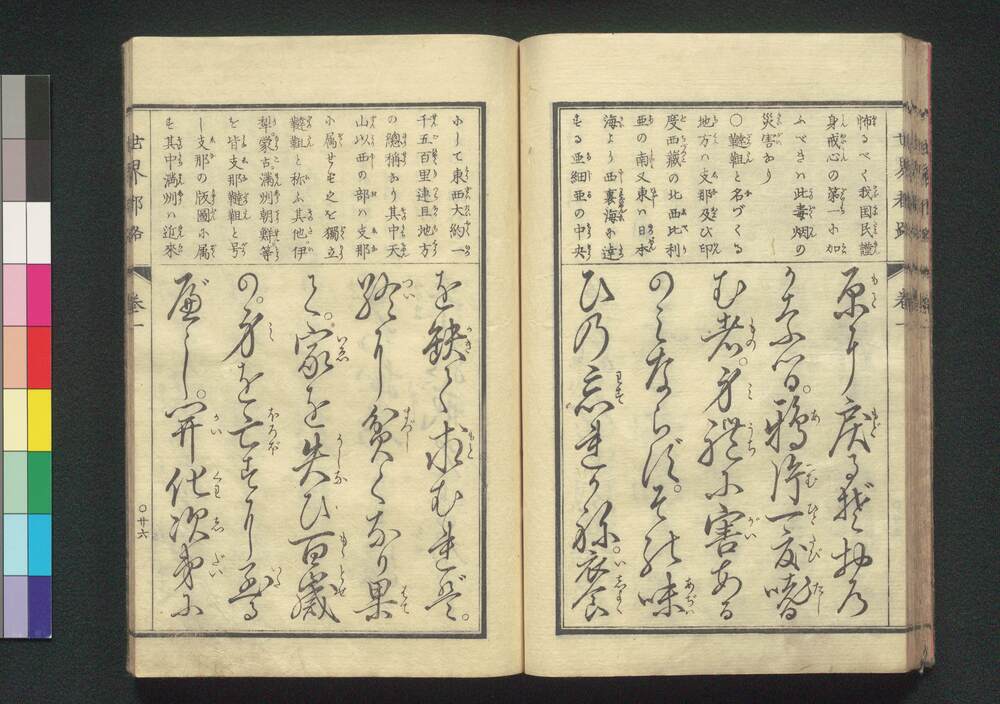 怖るべく我国民謹
身戒心の第一に加
ふべきハ此毒烟の
災害なり
○韃靼と名づくる
地方ハ支那及び印
度西蔵の北西比利
亜の南又東ハ日本
海より西裏海に達
する亜細亜の中央
原に戻る獣物の
かなふ鴉片一度喫
む者身體に害ある
のみならず其味
ひの忘れかね衣食
世界郡路
巻一
にして東西大約一
千五百里連亘地方
の總稱なり其中天
山以西の部ハ支那
に属せず之を獨立
韃靼と称ふ其他伊
犁蒙古満州朝鮮等
を皆支那韃靼と号
し支那の版圖に属
す其中満州ハ近來
を缺て求むれど
終に貧くなり果
て家を失ひ百歳
の身を亡すに至る
べし開化次第に
世界郡路
巻一
○廿六